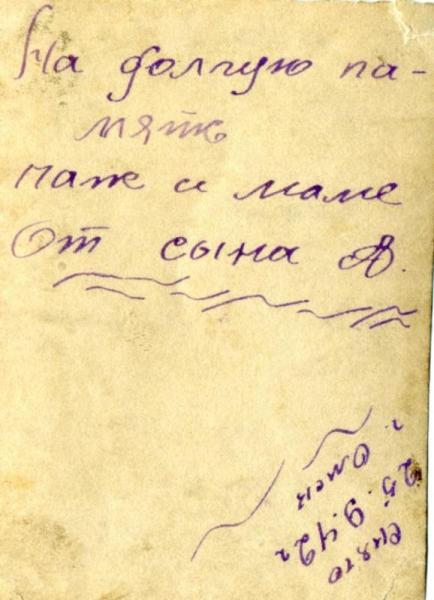 На долгую па-
мять
папе и маме
От сына А.
снято
25.9.42 г
г. Омск